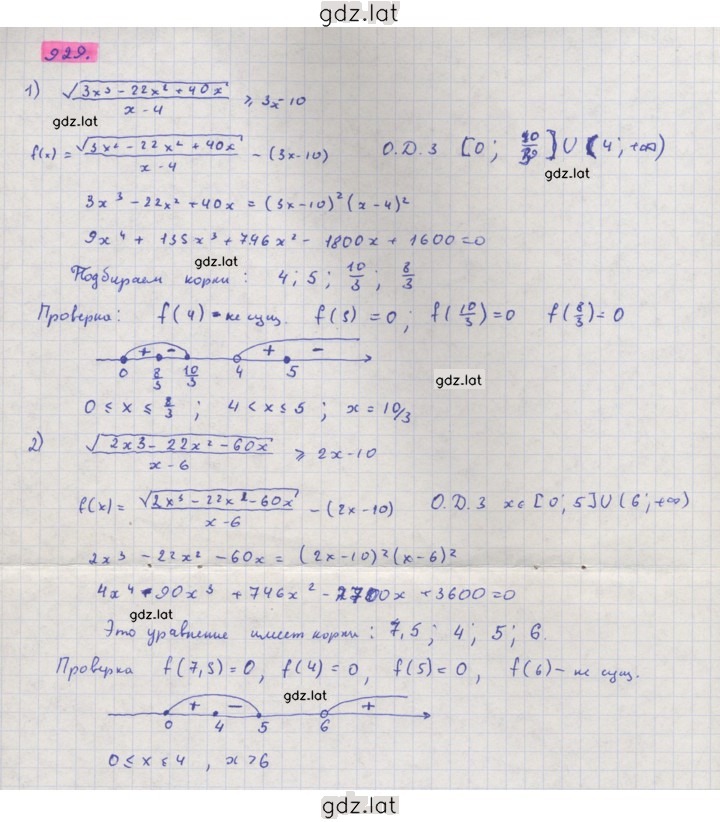 gdz.lat
929.
1) √(3x³ - 22x² + 40x) / (x - 4) ⩾ 3x - 10
gdz.lat
f(x) = √(3x² - 22x² + 40x) / (x - 4) - (3x - 10) О.Д.З [0; 10/3] ∪ (4; +∞)
gdz.lat
3x³ - 22x² + 40x = (3x - 10)² (x - 4)²
9x⁴ + 135x³ + 746x² - 1800x + 1600 = 0
gdz.lat
Подбираем корни: 4; 5; 10/3; 8/3
Проверка: f(4) - не сущ. f(5) = 0; f(10/3) = 0 f(8/3) = 0
+ - + -
0 8/3 10/3 4 5
gdz.lat
0 ≤ x ≤ 8/3; 4 < x ≤ 5; x = 10/3
2) √(2x3 - 22x² - 60x) / (x - 6) ⩾ 2x - 10
f(x) = √(2x³ - 22x² - 60x) / (x - 6) - (2x - 10) О.Д.З x ∈ [0; 5] ∪ (6; +∞)
2x³ - 22x² - 60x = (2x - 10)² (x - 6)²
4x⁴ - 90x³ + 746x² - 2700x + 3600 = 0
gdz.lat
Это уравнение имеет корни: 7,5; 4; 5; 6.
Проверка f(7,5) = 0, f(4) = 0, f(5) = 0, f(6) - не сущ.
gdz.lat
+ - +
0 4 5 6
0 ≤ x ≤ 4, x > 6
gdz.lat